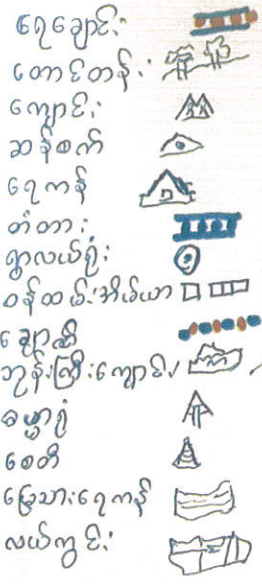 ရေချောင်း
တောင်တန်း
ကျောင်း
ဆန်စက်
ရေကန်
တံတား
ရွာလယ်ရုံး
ဝန်ထမ်းအိမ်ယာ
ချောဏှီ
ဘုန်းကြီးကျောင်း
ဓမ္မာရုံ
စေတီ
မြေသားရေကန်
လယ်ကွင်း